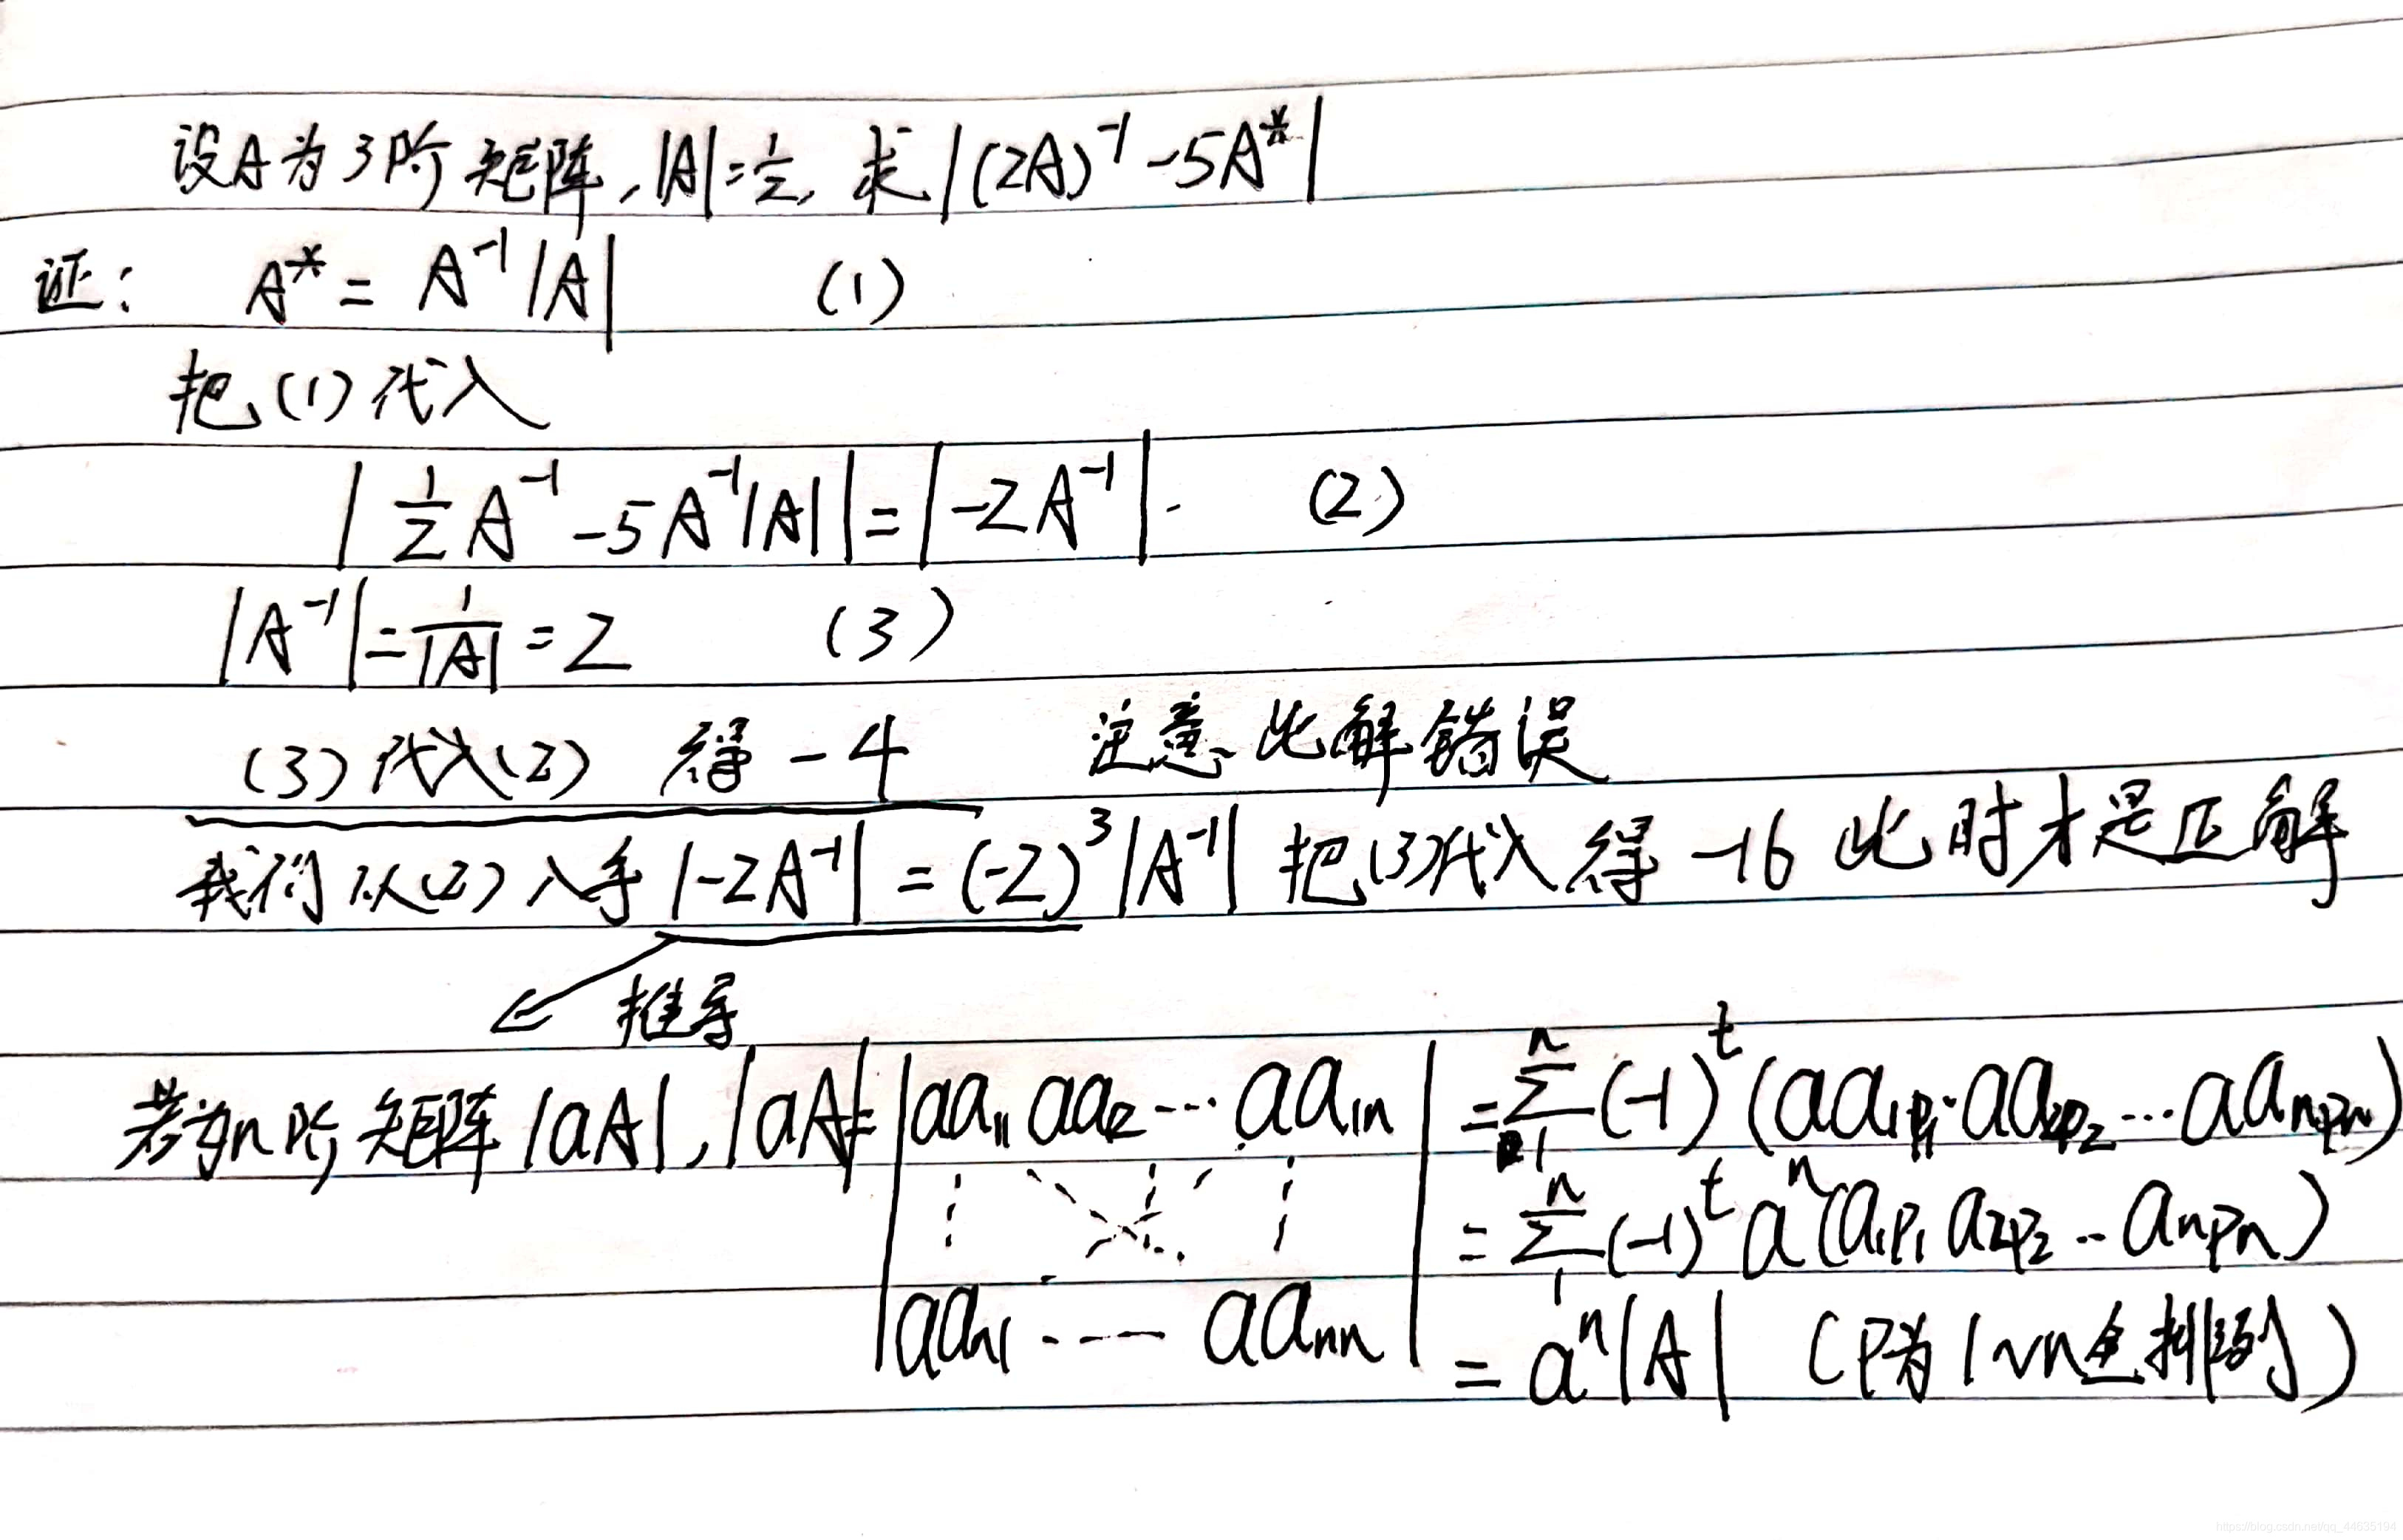 设A为3阶矩阵，|A|=1/2，求|(2A)^-1 -5A^*|
证： A^* = A^-1 |A| (1)
把(1)代入
|1/2 A^-1 -5A^-1|A|| = |-2A^-1|. (2)
|A^-1| = 1/|A| = 2 (3)
(3)代入(2) 得 -4 注意 此解错误
我们从(2)入手 |-2A^-1| = (-2)^3 |A^-1| 把(3)代入 得 -16 此时才是正解
推导
若为n阶矩阵|aA|，|aA|= |aa11 aa12 … aa1n ⋮ aan1 … aann| = Σ(-1)^t (aa1p1·aa2p2…aanpn)
= Σ(-1)^t a^n(a1p1 a2p2 … anpn)
= a^n|A| (P为1~n全排列)
https://blog.csdn.net/qq_44635194